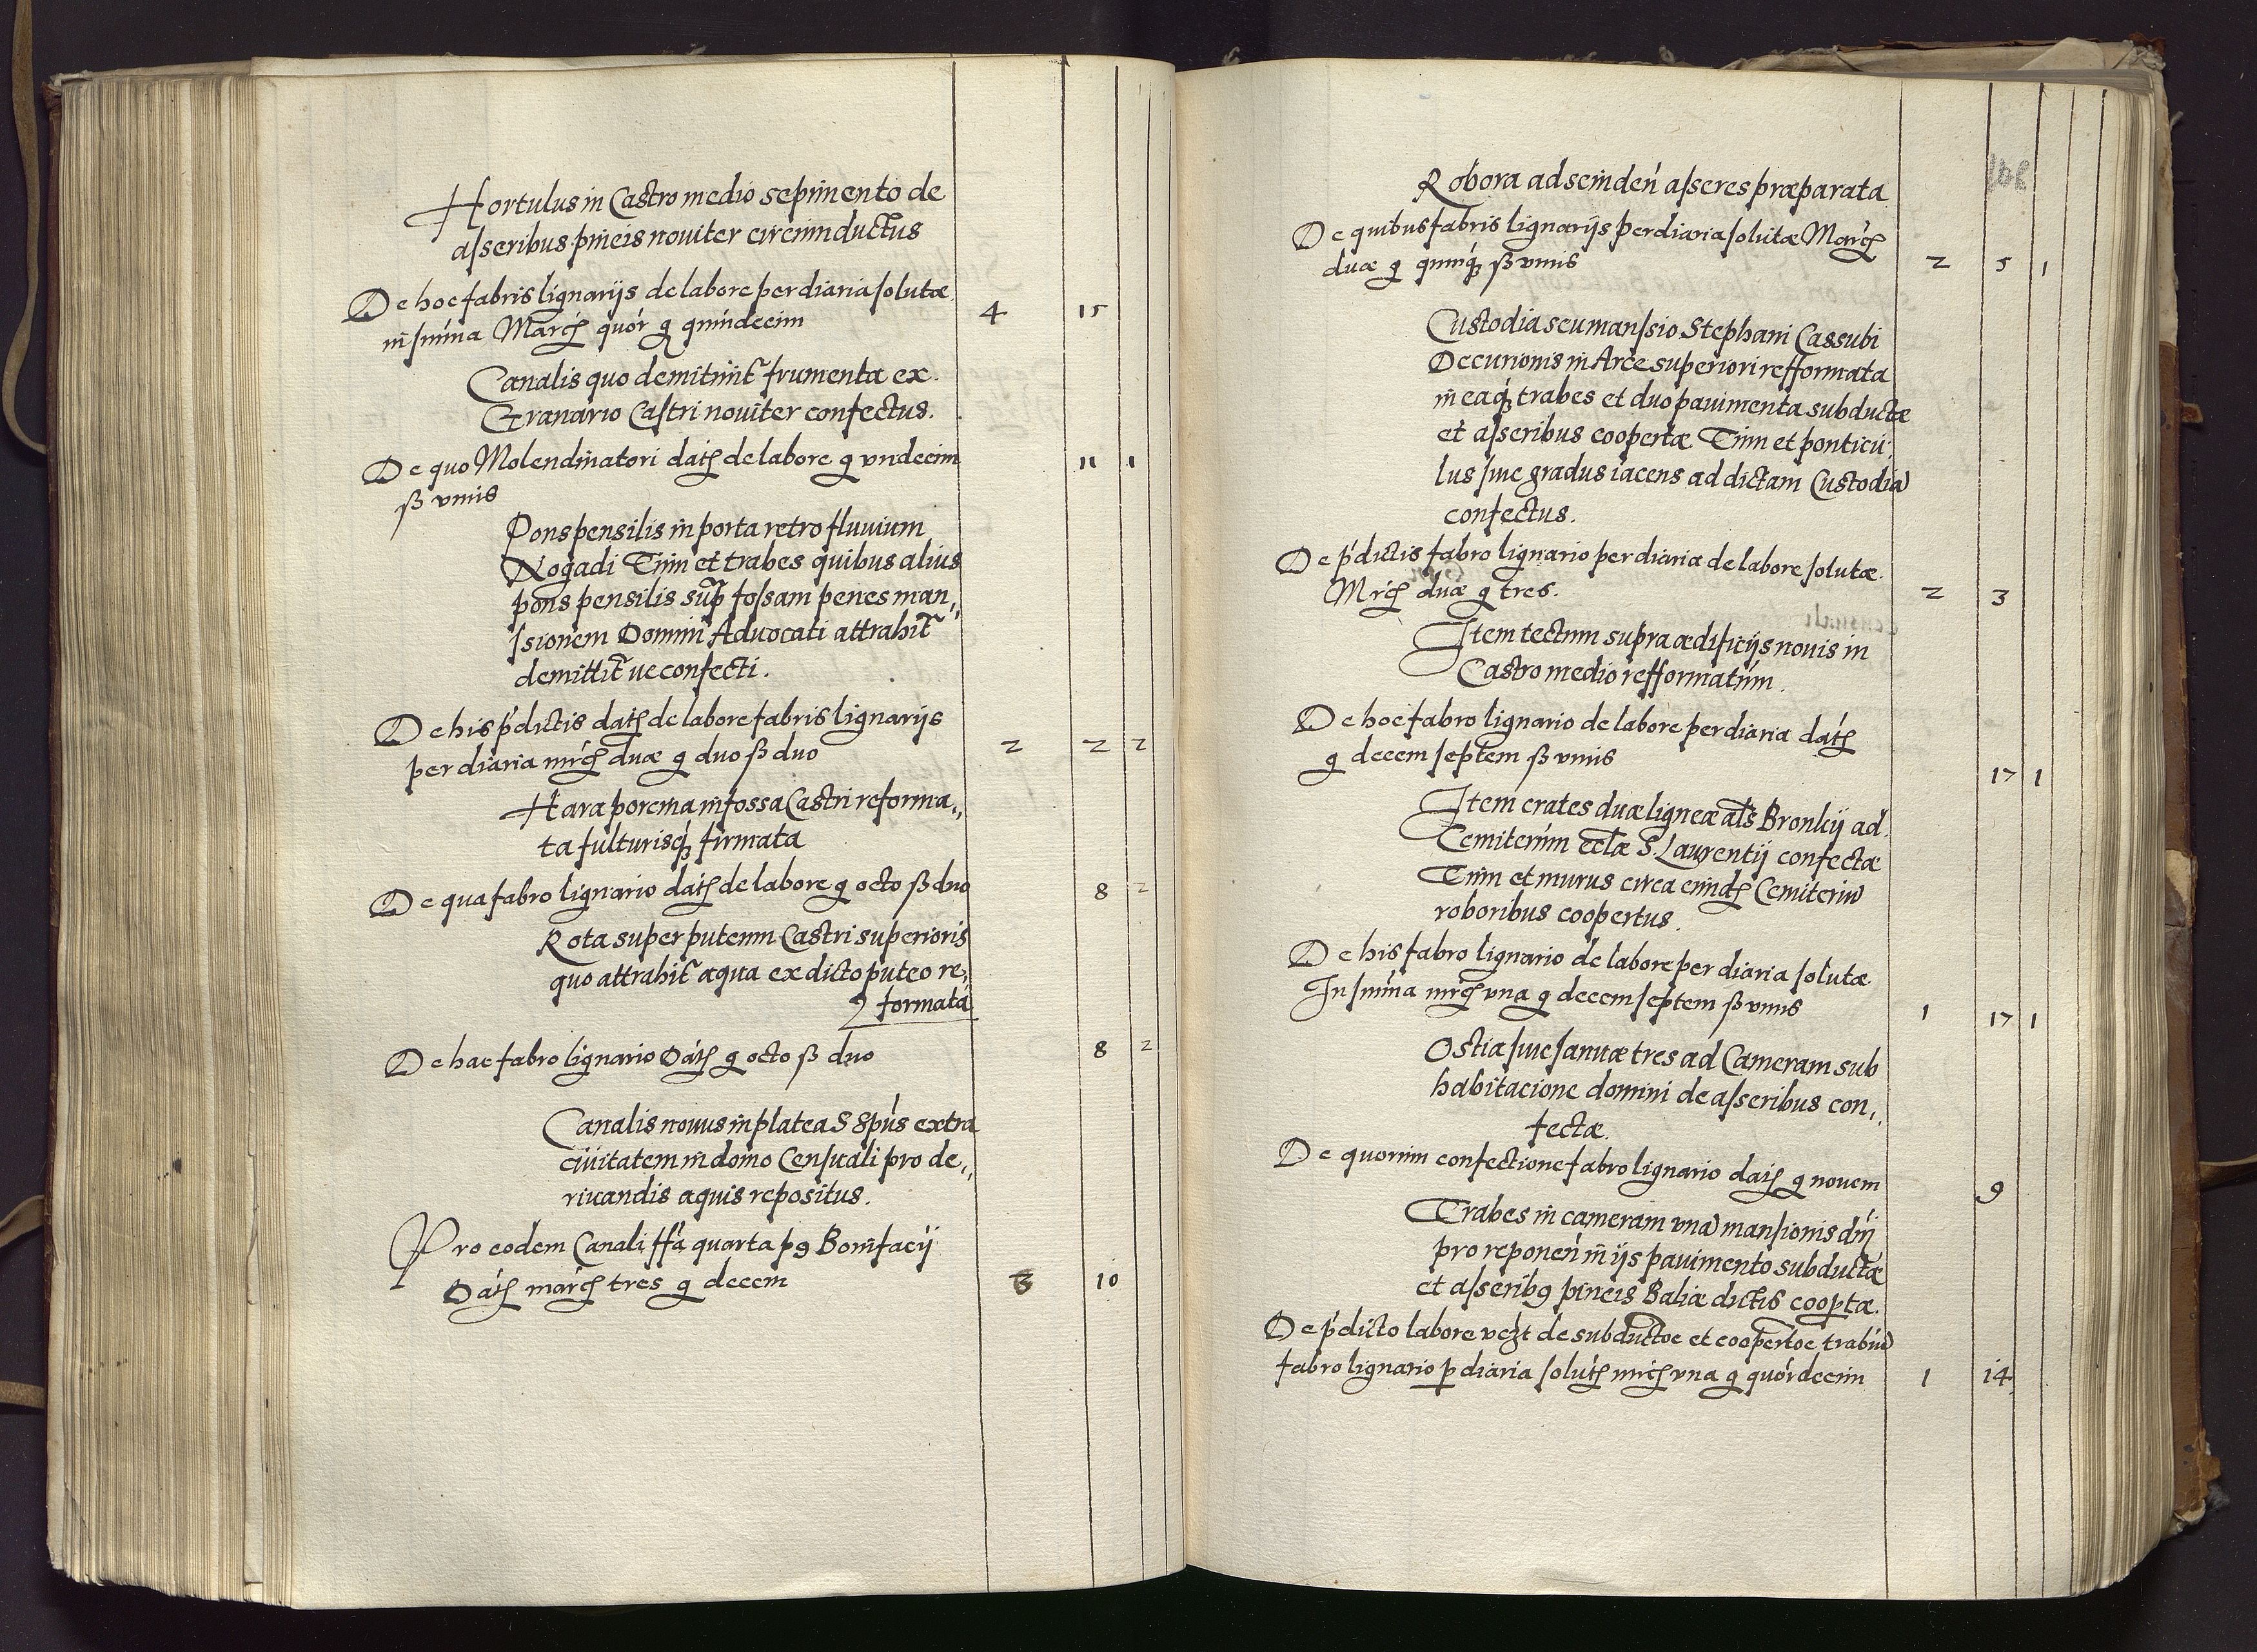 Hortulus in Castro medio sepimento de
asseribus pineis noviter circumductus
De hoc fabris lignarijs de labore per diaria solutae
in summa March quor g quindecim 4 15
Canalis quo demitunt frumenta ex
Granario Castri noviter confectus.
De quo Molendinatori dath de labore g vndecim 11 1
ß vnus
Pons pensilis in porta retro fluvium
Nogadi Tum et trabes quibus alius
pons pensilis sup fossam penes man„
ssionem Domini Advocati attrahit
demittit ve confecti.
De his pdictis dath de labore fabris lignarijs
per diaria mrch duae g duo ß duo 2 2 2
Hara porcina in fossa Castri reforma„
ta fulturisq firmata
De qua fabro lignario dath de labore g octo ß duo 8 2
Rota super puteum Castri superioris
quo attrahit aqua ex dicto puteo re„
formata
De hac fabro lignario Dath g octo ß duo 8 2
Canalis novus in platea S Spus extra
civitatem in domo Censuali pro de„
rivandis aquis repositus.
Pro eodem Canali ffa quarta p9 Bonifacij
Dath march tres g decem 3 10
Robora ad scinden asseres praeparata
De quibus fabris lignarijs per diaria solutae March
duae g quinq ß vnus 2 5 1
Custodia seu mansio Stephani Cassubi
Decurionis in Arce superiori refformata
in eaq trabes et duo pavimenta subductae
et asseribus coopertae Tum et ponticu
lus sive gradus iacens ad dictam Custodia
confectus.
De pdictis fabro lignario per diaria de labore solutae
Mrch duae g tres. 2 3
Item tectum supra aedificijs novis in
Castro medio refformatum.
De hoc fabro lignario de labore per diaria dath
g decem septem ß vnus 17 1
Item crates duae ligneae als Bronky ad
Cemiterium eclae S. Laurentij confectae
Tum et murus circa eundh Cemiteriu
roboribus coopertus.
De his fabro lignario de labore per diaria solutae
In summa mrch vna g decem septem ß vnus 1 17 1
Ostia sive Ianuae tres ad Cameram sub
habitacione domini de asseribus con„
fectae.
De quorum confectione fabro lignario dath g novem 9
Trabes in cameram vna mansionis dni
pro reponen in ijs pavimento subductae
et asserib9 pineis Baliae dictis cooptae.
De pdicto labore vezt de subductoe et coopertoe trabiu
fabro lignario p diaria soluth mrch vna g quordecim 1 14